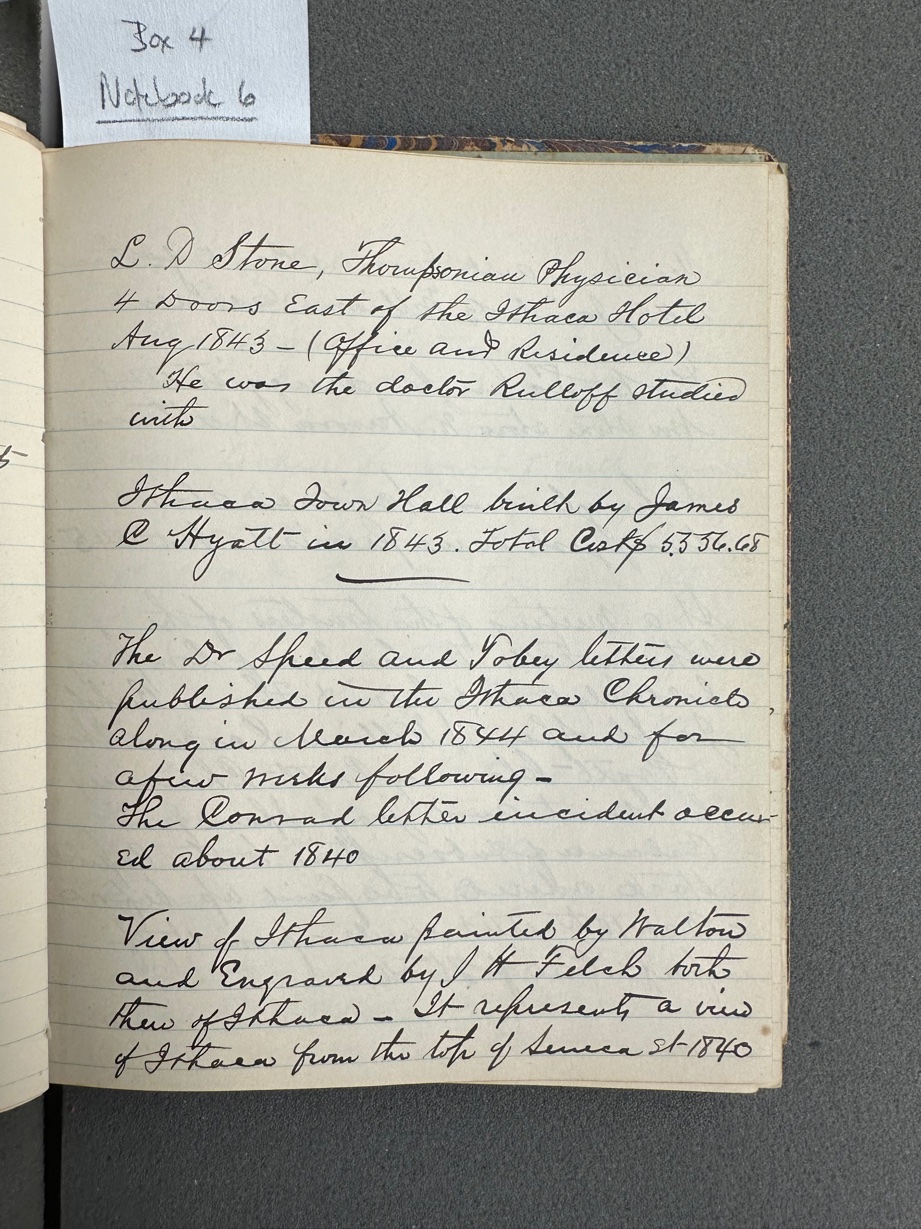 Box 4
Notebook 6
L. D Stone, Thompsonian Physician
4 Doors East of the Ithaca Hotel
Aug 1843 - (Office and Residence)
He was the doctor Rulloff studied
with
Ithaca Town Hall built by James
C Hyatt in 1843. Total Cost $ 5556.68
The Dr Speed and Tobey letters were
published in the Ithaca Chronicle,
along in March 1844 and for
a few weeks following -
The Conrad letter incident occur-
ed about 1840
View of Ithaca painted by Walton
and Engraved by J H Felch both
then of Ithaca - It represents a view
of Ithaca from the top of Seneca st 1840